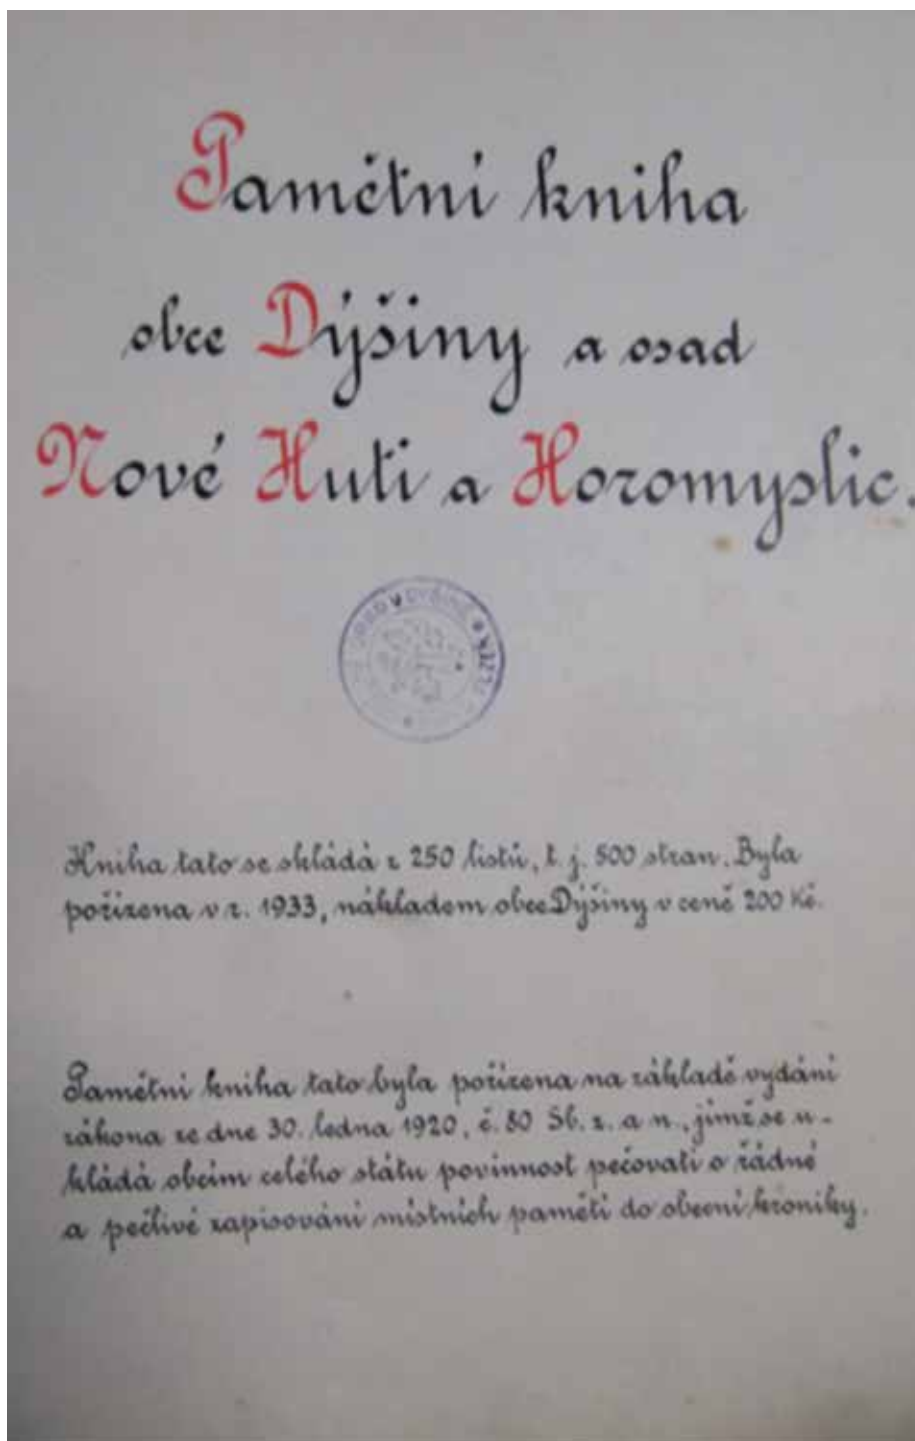 Pamětní kniha
obce Dýšiny a osad
Nové Huti a Horomyslic.
Kniha tato se skládá z 250 listů, t. j. 500 stran. Byla
pořízena v r. 1933, nákladem obce Dýšiny v ceně 200 Kč.
Pamětní kniha tato byla pořízena na základě vydání
zákona ze dne 30. ledna 1920, č. 80 Sb. z. a n., jímž se u-
kládá obcím celého státu povinnost pečovati o řádné
a pečlivé zapisování místních pamětí do obecní kroniky.